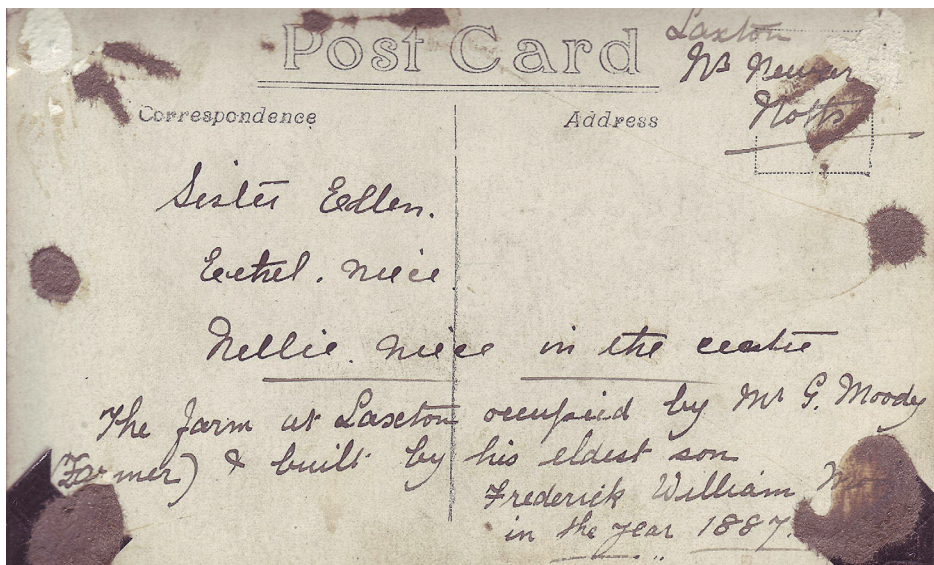 Post Card
Laxton
Nr Newar
Notts
Correspondence
Address
Sister Edlen.
Eethel. niece
Nellie. niece in the centre
The farm at Laxton occupied by Mr G. Moody
(Farmer) & built by his eldest son
Frederick William
in the year 1887.